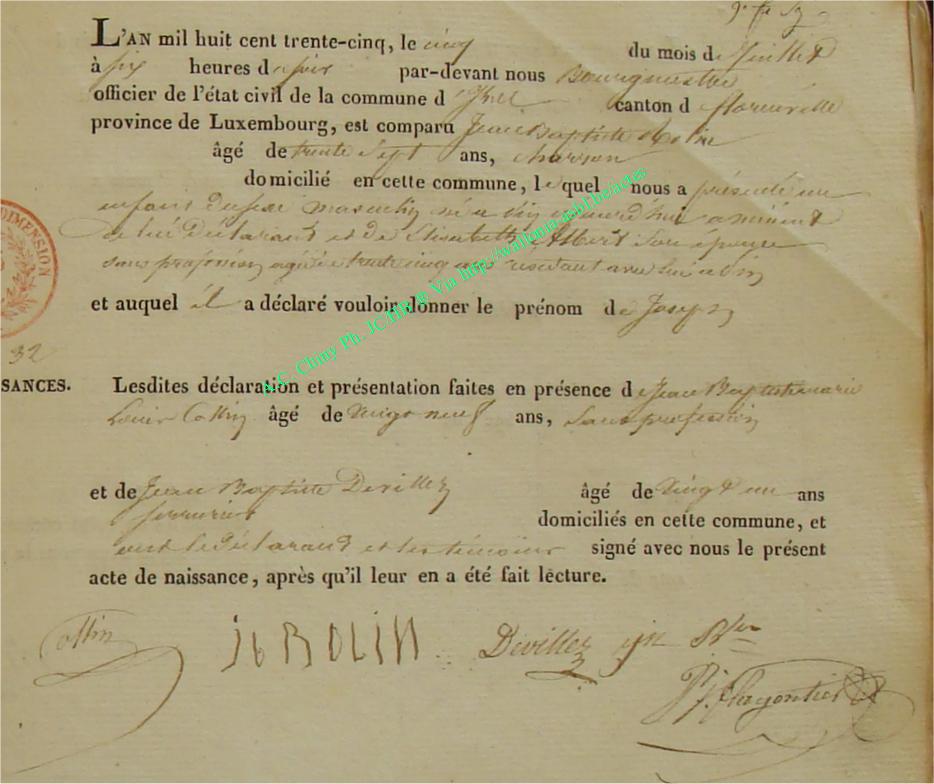 L'AN mil huit cent trente-cinq, le cinq du mois de Juillet
à six heures du soir par-devant nous Bourgmestre
officier de l'état civil de la commune d'Izel canton de florenville
province de Luxembourg, est comparu Jean Baptiste Rolin
âgé de trente Sept ans, charron
domicilié en cette commune, lequel nous a présenté un
enfant du sexe masculin né à Izel aujourd'hui à minuit
de lui déclarant et de Elisabeth Albert Son épouse
sans profession agée de trente cinq ans résidant avec lui
et auquel il a déclaré vouloir donner le prénom de Joseph
32
SANCES. Lesdites déclaration et présentation faites en présence de Jean Baptiste marie
Louis Collin âgé de vingt neuf ans, Sans profession
et de Jean Baptiste Devillez âgé de vingt un ans
serrurier domiciliés en cette commune, et
ont le déclarant et les témoins signé avec nous le présent
acte de naissance, après qu'il leur en a été fait lecture.
Collin Jb ROLIN Devillez
DIMENSION
A.C. Chiny Ph. JC.HB © Via http://wallonia-asbl.be/actes